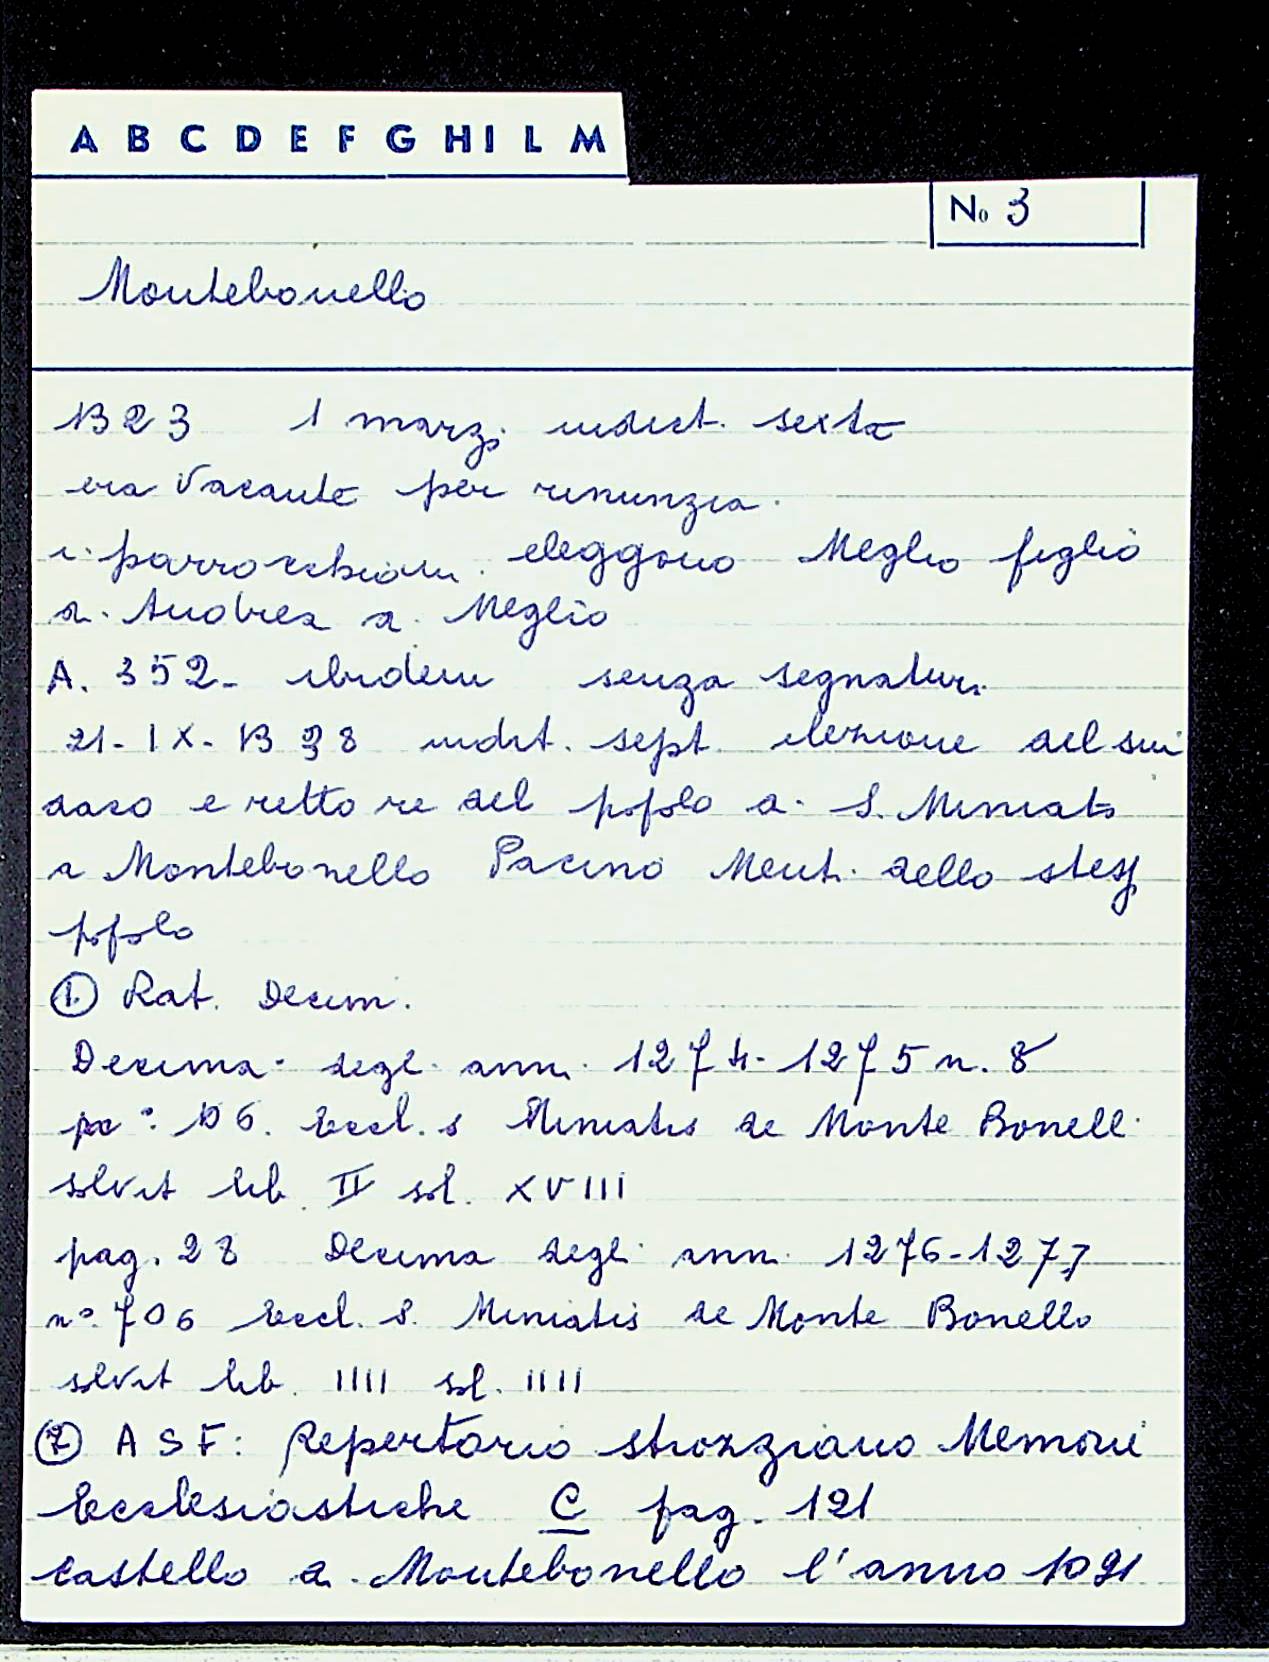 A B C D E F G H I L M
No 3
Montebonello
1323 1 marzi indict. sexta
era vacante per rinunzia.
i parrocchiani eleggono Meglio figlio
di Andrea di Meglio
A. 352 - ibidem senza segnatura
21-IX-1338 indit. sept. elezione del sin
daco e rettore del popolo di S. Miniato
a Montebonello Pacino Ment. dello stess
popolo
① Rat. Decim.
Decima degli anni 1274-1275 n. 8
n° 136. Eccl. s Miniatis de Monte Bonelli
solvit lib. II sol. XVIII
pag. 28 Decima degli anni 1276-1277
n° 706 Eccl. S. Miniatis de Monte Bonello
solvit lib. IIII sol. IIII
② ASF: Repertorio strozziano Memorie
Ecclesiastiche C pag. 121
castello di Montebonello l'anno 1091